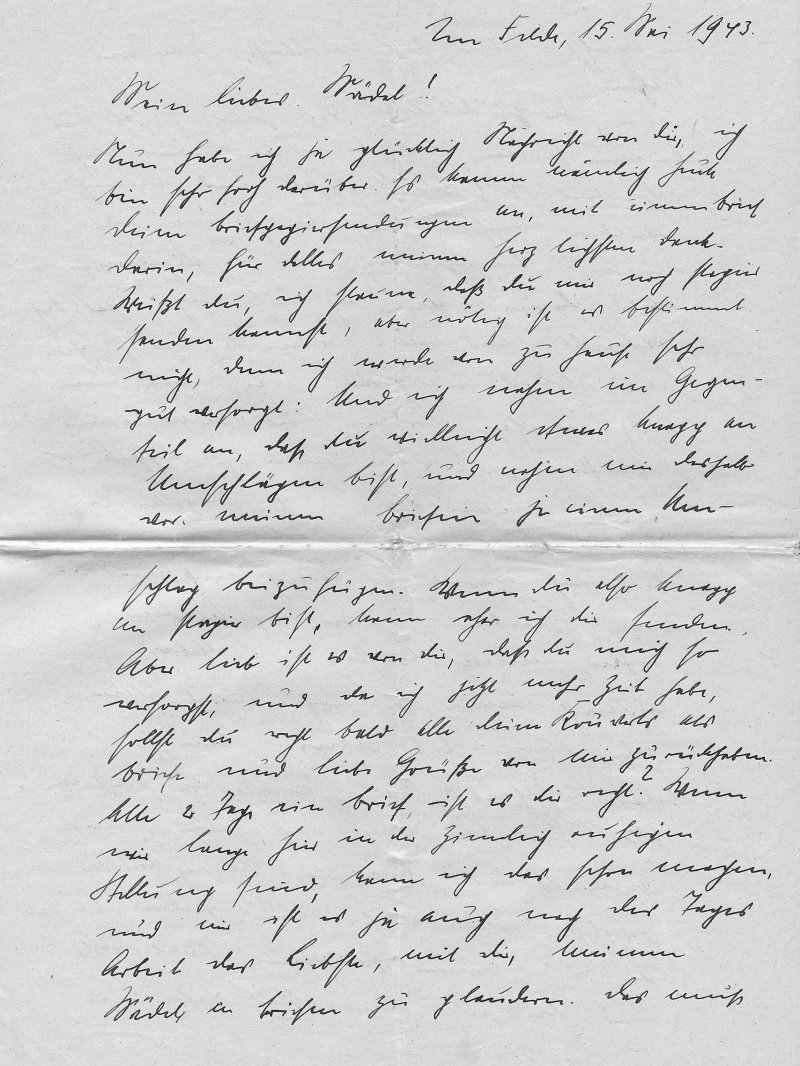 Im Felde, 15. Mai 1943.
Mein liebes Mädel!
Nun habe ich ja glücklich Nachricht von dir, ich
bin sehr froh darüber. Es kamen nämlich heute
deine Briefpapiersendungen an, mit einem Brief
darin, für alles meinen herzlichsten Dank.
Weißt du, ich staune, daß du mir noch Papier
senden kannst, aber nötig ist es bestimmt
nicht, denn ich werde von zu Hause sehr
gut versorgt. Und ich nehme im Gegen-
teil an, daß du vielleicht etwas knapp an
Umschlägen bist, und nehm mir deshalb
vor meinen Briefen je einen Um-
schlag beizufügen. Wenn du also knapp
an Papier bist, kann eher ich dir senden.
Aber lieb ist es von dir, daß du mich so
versorgst, und da ich jetzt mehr Zeit habe,
sollst du recht bald alle deine Kouverts als
Briefe und liebe Grüße von mir zurückhaben.
Alle 2 Tage ein Brief, ist es dir recht? Wenn
wir lange hier in der ziemlich ruhigen
Stellung sind, kann ich das schon machen,
und mir ist es ja auch nach des Tages
Arbeit das Liebste, mit dir, meinem
Mädel, in Briefen zu plaudern. Das muß